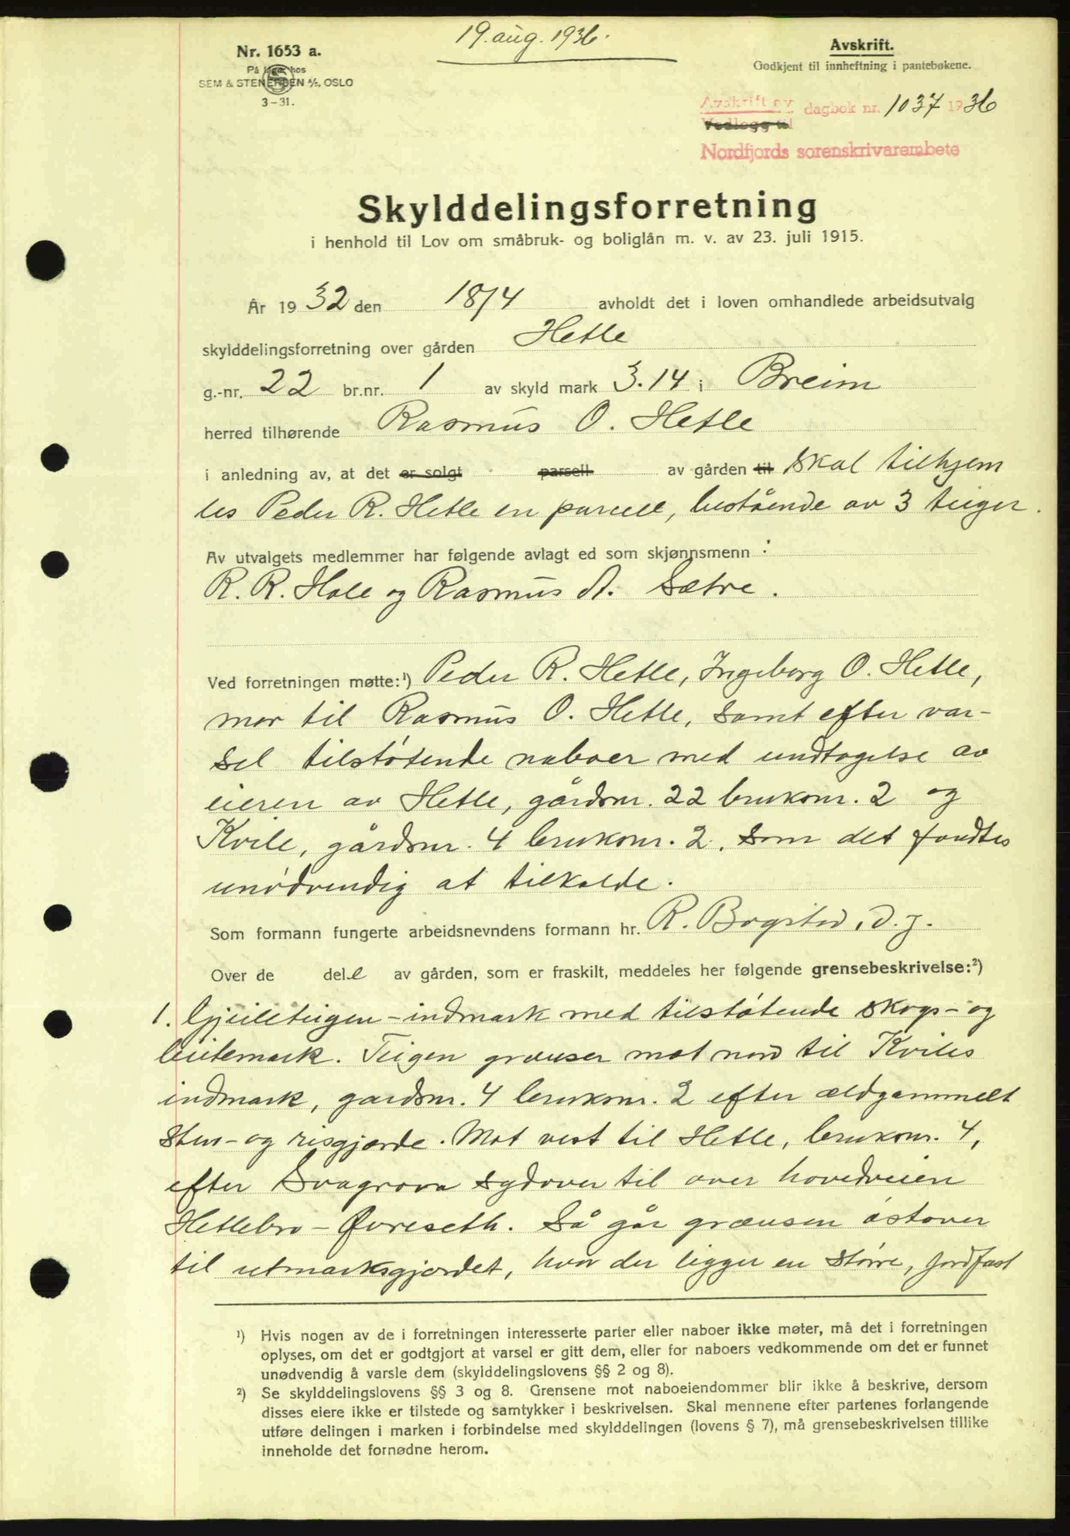 19. aug. 1936.
Nr. 1653 a.
På lager hos
SEM & STENERSEN A/S, OSLO
3-31.
Avskrift.
Godkjent til innheftning i pantebøkene.
Avskrift av
Vedlegg til
dagbok nr. 1037 1936
Nordfjords sorenskrivarembete
Skylddelingsforretning
i henhold til Lov om småbruk- og boliglån m. v. av 23. juli 1915.
År 1932 den 18/4 avholdt det i loven omhandlede arbeidsutvalg
skylddelingsforretning over gården Hetle
g.-nr. 22 br.nr. 1 av skyld mark 3.14 i Breim
herred tilhørende Rasmus O. Hetle
i anledning av, at det er solgt parsell av gården til skal tilhjem
les Peder R. Hetle en parcell, bestående av 3 teiger.
Av utvalgets medlemmer har følgende avlagt ed som skjønnsmenn:
R. R. Hole og Rasmus A. Sætre.
Ved forretningen møtte:¹) Peder R. Hetle, Ingeborg O. Hetle,
mor til Rasmus O. Hetle, samt efter var-
sel tilstøtende naboer med undtagelse av
eieren av Hetle, gårdsnr. 22 bruksnr. 2 og
Kvile, gårdsnr. 4 bruksnr. 2, som det fandtes
unødvendig at tilkalde.
Som formann fungerte arbeidsnevndens formann hr. R. Bogstad, d.y.
Over de dele av gården, som er fraskilt, meddeles her følgende grensebeskrivelse:²)
1. Gjeileteigen - indmark med tilstøtende skogs- og
beitemark. Teigen grænser mot nord til Kviles
indmark, gardsnr. 4 bruksnr. 2 efter ældgammelt
sten- og risgjærde. Mot vest til Hetle, bruksnr. 4,
efter Svagrova sydover til over hovedveien
Hetlebro - Øvreseth. Så går grænsen østover
til utmarksgjerdet, hvor der ligger en større, jordfast
¹) Hvis nogen av de i forretningen interesserte parter eller naboer ikke møter, må det i forretningen
oplyses, om det er godtgjort at varsel er gitt dem, eller for naboers vedkommende om det er funnet
unødvendig å varsle dem (skylddelingslovens §§ 2 og 8).
²) Se skylddelingslovens §§ 3 og 8. Grensene mot naboeiendommer blir ikke å beskrive, dersom
disses eiere ikke er tilstede og samtykker i beskrivelsen. Skal mennene efter partenes forlangende
utføre delingen i marken i forbindelse med skylddelingen (lovens § 7), må grensebeskrivelsen tillike
inneholde det fornødne herom.